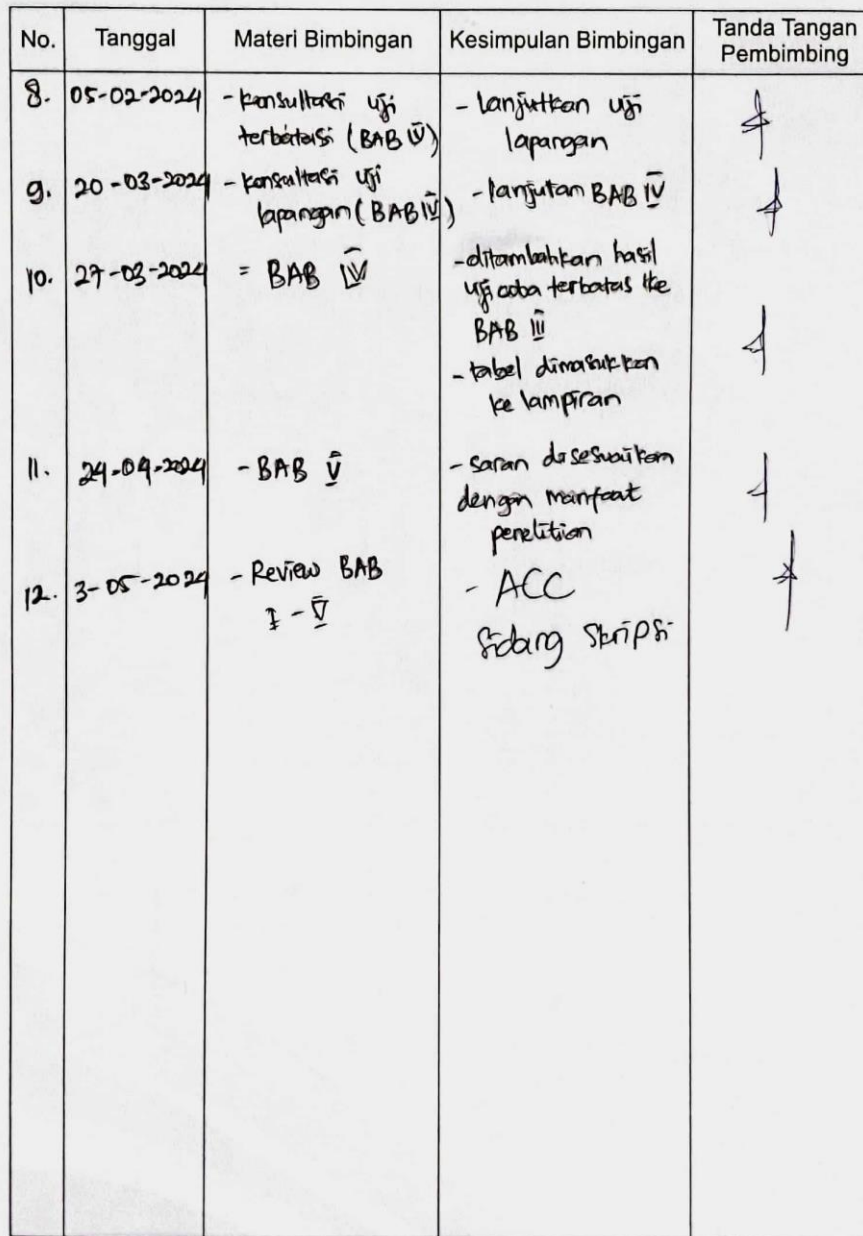 No. Tanggal Materi Bimbingan Kesimpulan Bimbingan Tanda Tangan Pembimbing
8. 05-02-2024 - konsultasi uji - lanjutkan uji
terbatasi (BAB IV) lapangan
9. 20-03-2024 - konsultasi uji
lapangan (BAB IV) - lanjutan BAB IV
10. 27-03-2024 = BAB IV - ditambahkan hasil
uji coba terbatas ke
BAB III
- tabel dimasukkan
ke lampiran
11. 24-04-2024 - BAB V - saran disesuaikan
dengan manfaat
penelitian
12. 3-05-2024 - Review BAB - ACC
I - V Sidang Skripsi